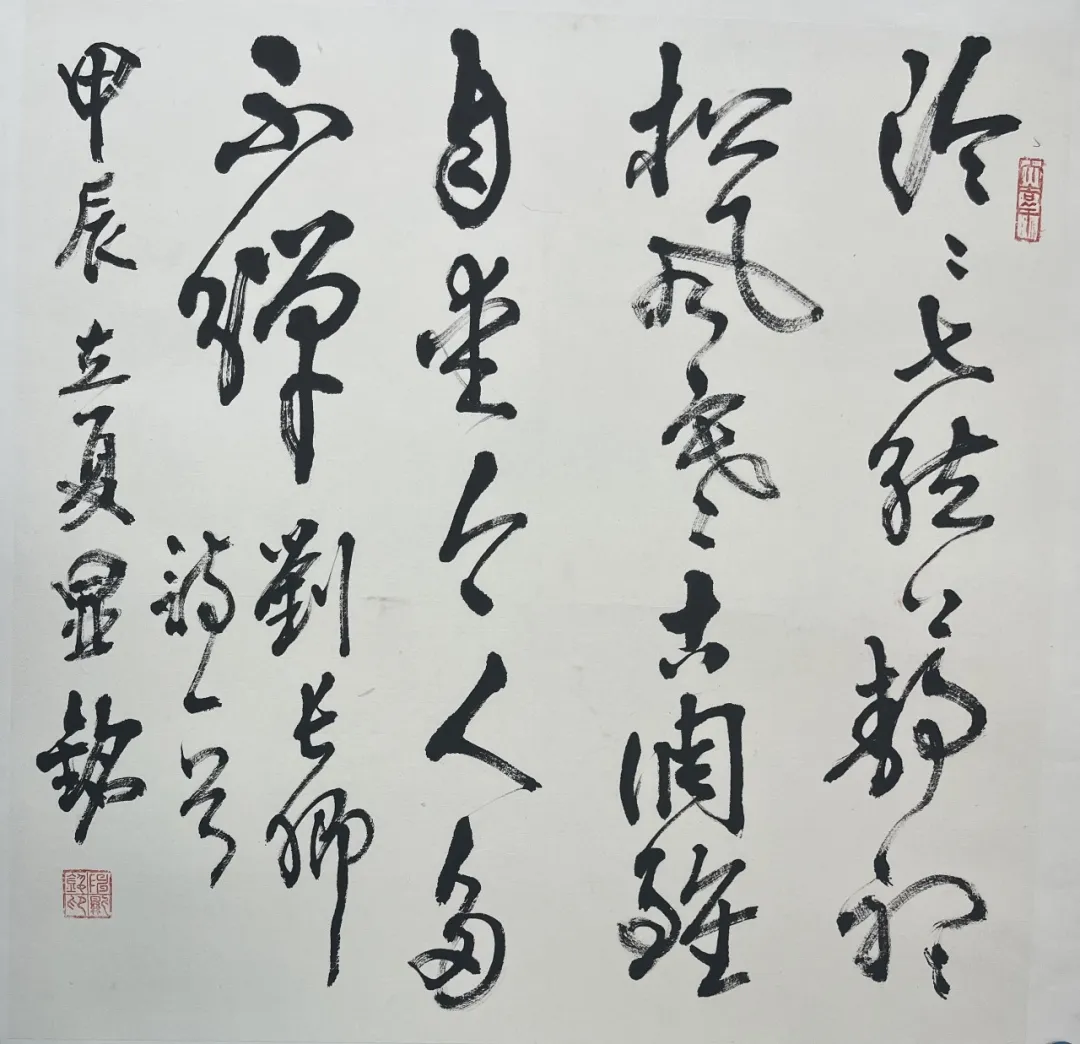 泠〻七絃上靜聽
松風寒古調雖
自愛今人多
不彈
劉長卿
詩一首
甲辰立夏显銘